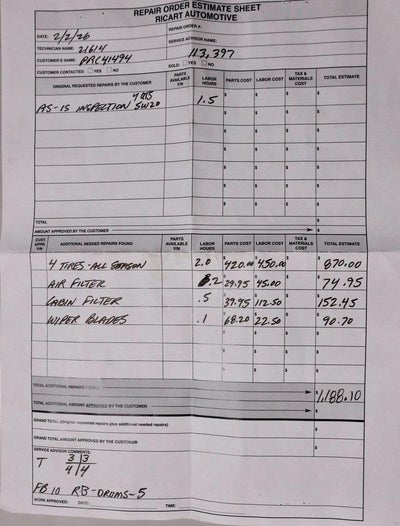 REPAIR ORDER ESTIMATE SHEET
RICART AUTOMOTIVE
DATE: 2/2/26 REPAIR ORDER #:
TECHNICIAN NAME: 21614 SERVICE ADVISOR NAME:
CUSTOMER'S NAME: PRC41494 113,397
CUSTOMER CONTACTED: YES NO SOLD: YES NO
ORIGINAL REQUESTED REPAIRS BY THE CUSTOMER PARTS AVAILABLE Y/N LABOR HOURS PARTS COST LABOR COST TAX & MATERIALS COST TOTAL ESTIMATE
AS-IS INSPECTION 5W20 1.5 $ $ $ $
$ $ $ $
$ $ $ $
$ $ $ $
$ $ $ $
$ $ $ $
$ $ $ $
TOTAL
AMOUNT APPROVED BY THE CUSTOMER $
CUST. APPR. Y/N ADDITIONAL NEEDED REPAIRS FOUND PARTS AVAILABLE Y/N LABOR HOURS PARTS COST LABOR COST TAX & MATERIALS COST TOTAL ESTIMATE
4 TIRES-ALL SEASON 2.0 $ 420.00 $ 450.00 $ $ 870.00
AIR FILTER .2 $ 29.95 $ 45.00 $ $ 74.95
CABIN FILTER .5 $ 39.95 $ 112.50 $ $ 152.45
WIPER BLADES .1 $ 68.20 $ 22.50 $ $ 90.70
$ $ $ $
$ $ $ $
TOTAL ADDITIONAL REPAIRS $ 1,188.10
TOTAL ADDITIONAL AMOUNT APPROVED BY THE CUSTOMER $
GRAND TOTAL (Original requested repairs plus additional needed repairs) $
GRAND TOTAL AMOUNT APPROVED BY THE CUSTOMER $
SERVICE ADVISOR COMMENTS:
T 3 | 3
4 | 4
FB 10 RB-DRUMS-5
WORK APPROVED. DATE: TIME: